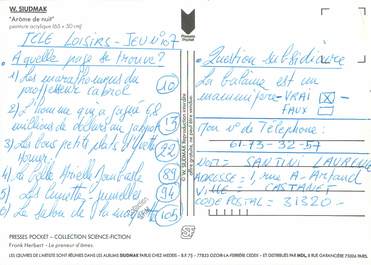 W. SIUDMAK
"Arôme de nuit"
peinture acrylique (65 x 50 cm)
TELE LOISIRS - JEU N° 107
A quelle page se trouve?
1) Les marathoniens du
professeur Cabrol
10
2) L'homme qui a gagné 68
millions de dollars au jackpot
13
3) Les bons petits plats d'
22
4) La belle Arielle Dombasle
89
5) Les lunettes jumelles
94
6) Le salon de la
105
PRESSES POCKET – COLLECTION SCIENCE-FICTION
Frank Herbert - Le preneur d'âmes.
© W. SIUDMAK Reproduction interdite
offre gratuite, ne peut être vendue.
Question subsidiaire
La baleine est un
mammifère - VRAI X
FAUX
Mon n° de Téléphone :
61-73-32-57
NOM = SANTINI LAURENCE
ADRESSE = 1 rue A. Artaud
VILLE = CASTANET
CODE POSTAL = 31320 -
LES ŒUVRES DE L'ARTISTE SONT RÉUNIES DANS LES ALBUMS SIUDMAK PARUS CHEZ MEDIES - B.P. 75 - 77833 OZOIR-LA-FERRIERE CEDEX - ET DISTRIBUÉS PAR MDL, 8 RUE GARANCIÈRE 75006 PARIS.